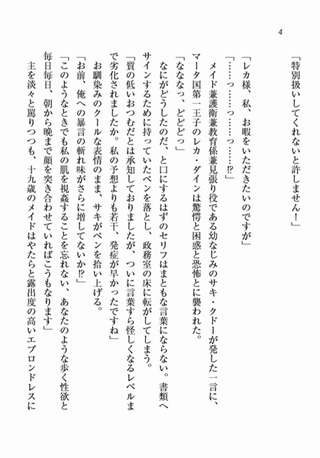 4
「特別扱いしてくれないと許しません！」
「レカ様、私、お暇をいただきたいのですが」
「……っ……っ……っ……!?」
　メイド兼護衛兼教育係兼見張り役である幼なじみのサキ・クドーが発した一言に、
マータ国第一王子のレカ・ダインは驚愕と困惑と恐怖とに襲われた。
「なななっ、どどどっ」
　なにがどうしたのだ、と口にするはずのセリフはまともな言葉にならない。書類へ
サインするために持っていたペンを落とし、政務室の床に転がしてしまう。
「質の低いおつむだとは承知しておりましたが、ついに言葉すら怪しくなるレベルま
で劣化されましたか。私の予想よりも若干、発症が早かったですね」
　お馴染みのクールな表情のまま、サキがペンを拾い上げる。
「お前、俺への暴言の斬れ味がさらに増してないか!?」
「このようなときでも私の肌を視姦することを忘れない、あなたのような歩く性欲と
毎日毎日、朝から晩まで顔を突き合わせていればこうもなります」
　主を淡々と罵りつつも、十九歳のメイドはやたらと露出度の高いエプロンドレスに